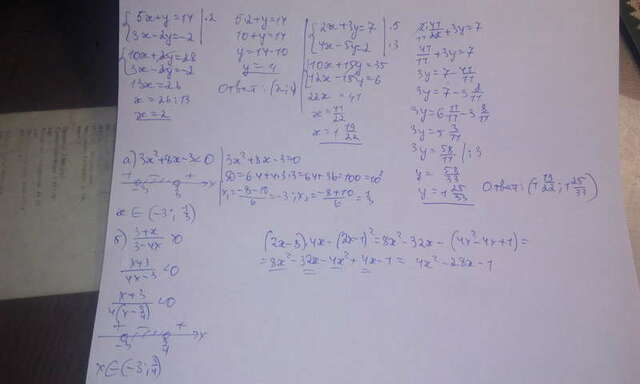 {5x+y=14 |·2
{3x-2y=-2
{10x+2y=28
{3x-2y=-2
13x=26
x=26:13
x=2
5·2+y=14
10+y=14
y=14-10
y=4
Ответ: (2;4)
{2x+3y=7 |·5
{4x-5y=2 |·3
{10x+15y=35
{12x-15y=6
22x=41
x=41/22
x=1 19/22
+3y=7
41/11+3y=7
3y=7-41/11
3y=7-3 8/11
3y=6 11/11-3 8/11
3y=3/11
3y=58/11 |:3
y=58/33
y=1 25/33
Ответ: (1 19/22; 1 25/33)
а) 3x²+8x-3<0
3x²+8x-3=0
D=64+4·3·3=64+36=100=10²
x₁=(-8-10)/6=-3; x₂=(-8+10)/6=1/3
+ - +
-3 1/3 x
x∈(-3; 1/3)
б) (3+x)/(3-4x)>0
(x+3)/(4x-3)<0
(x+3)/(4(x-3/4))<0
+ - +
-3 3/4 x
x∈(-3; 3/4)
(2x-8)·4x-(2x-1)²=8x²-32x-(4x²-4x+1)=
=8x²-32x-4x²+4x-1=4x²-28x-1